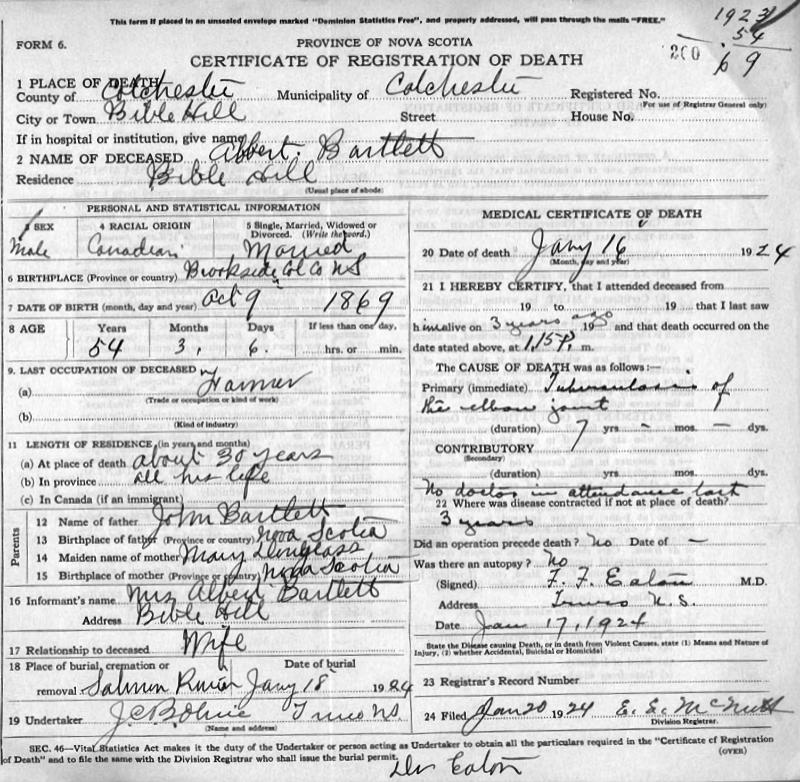 This form if placed in an unsealed envelope marked "Dominion Statistics Free", and properly addressed, will pass through the mails "FREE."
1923
54
69
FORM 6.
PROVINCE OF NOVA SCOTIA
CERTIFICATE OF REGISTRATION OF DEATH
1 PLACE OF DEATH
County of Colchester Municipality of Colchester Registered No.
(For use of Registrar General only)
City or Town Bible Hill Street House No.
If in hospital or institution, give name
2 NAME OF DECEASED Albert Bartlett
Residence Bible Hill
(Usual place of abode)
PERSONAL AND STATISTICAL INFORMATION
3 SEX 4 RACIAL ORIGIN 5 Single, Married, Widowed or Divorced. (Write the word.)
Male Canadian Married
6 BIRTHPLACE (Province or country) Brookside Col Co NS
7 DATE OF BIRTH (month, day and year) Oct 9 1869
8 AGE Years Months Days If less than one day,
54 3, 6. hrs. or min.
9. LAST OCCUPATION OF DECEASED
(a) Farmer
(Trade or occupation or kind of work)
(b)
(Kind of industry)
11 LENGTH OF RESIDENCE (in years and months)
(a) At place of death about 30 years
(b) In province all his life
(c) In Canada (if an immigrant)
Parents
12 Name of father John Bartlett
13 Birthplace of father (Province or country) Nova Scotia
14 Maiden name of mother Mary Douglass
15 Birthplace of mother (Province or country) Nova Scotia
16 Informant's name Mrs Albert Bartlett
Address Bible Hill
17 Relationship to deceased Wife
18 Place of burial, cremation or Date of burial
removal Salmon River Jany 18 1924
19 Undertaker Truro NS.
(Name and address)
MEDICAL CERTIFICATE OF DEATH
20 Date of death Jany 16 1924
(Month, day and year)
21 I HEREBY CERTIFY, that I attended deceased from
19 to 19 that I last saw
him alive on 3 years ago 19 and that death occurred on the
date stated above, at 1.15 P. m.
The CAUSE OF DEATH was as follows:—
Primary (immediate) Tuberculosis of
the elbow joint
(duration) 7 yrs - mos. — dys.
CONTRIBUTORY
(Secondary)
(duration) yrs mos. dys.
No doctor in attendance last
22 Where was disease contracted if not at place of death?
3 years
Did an operation precede death? No Date of —
Was there an autopsy? No
(Signed) F. F. Eaton M.D.
Address Truro N.S.
Date Jan 17, 1924
State the Disease causing Death, or in death from Violent Causes, state (1) Means and Nature of
Injury, (2) whether Accidental, Suicidal or Homicidal.
23 Registrar's Record Number
24 Filed Jan 20 1924 E. E. McNutt
Division Registrar.
SEC. 46—Vital Statistics Act makes it the duty of the Undertaker or person acting as Undertaker to obtain all the particulars required in the "Certificate of Registration
of Death" and to file the same with the Division Registrar who shall issue the burial permit. (OVER)
Dr Eaton